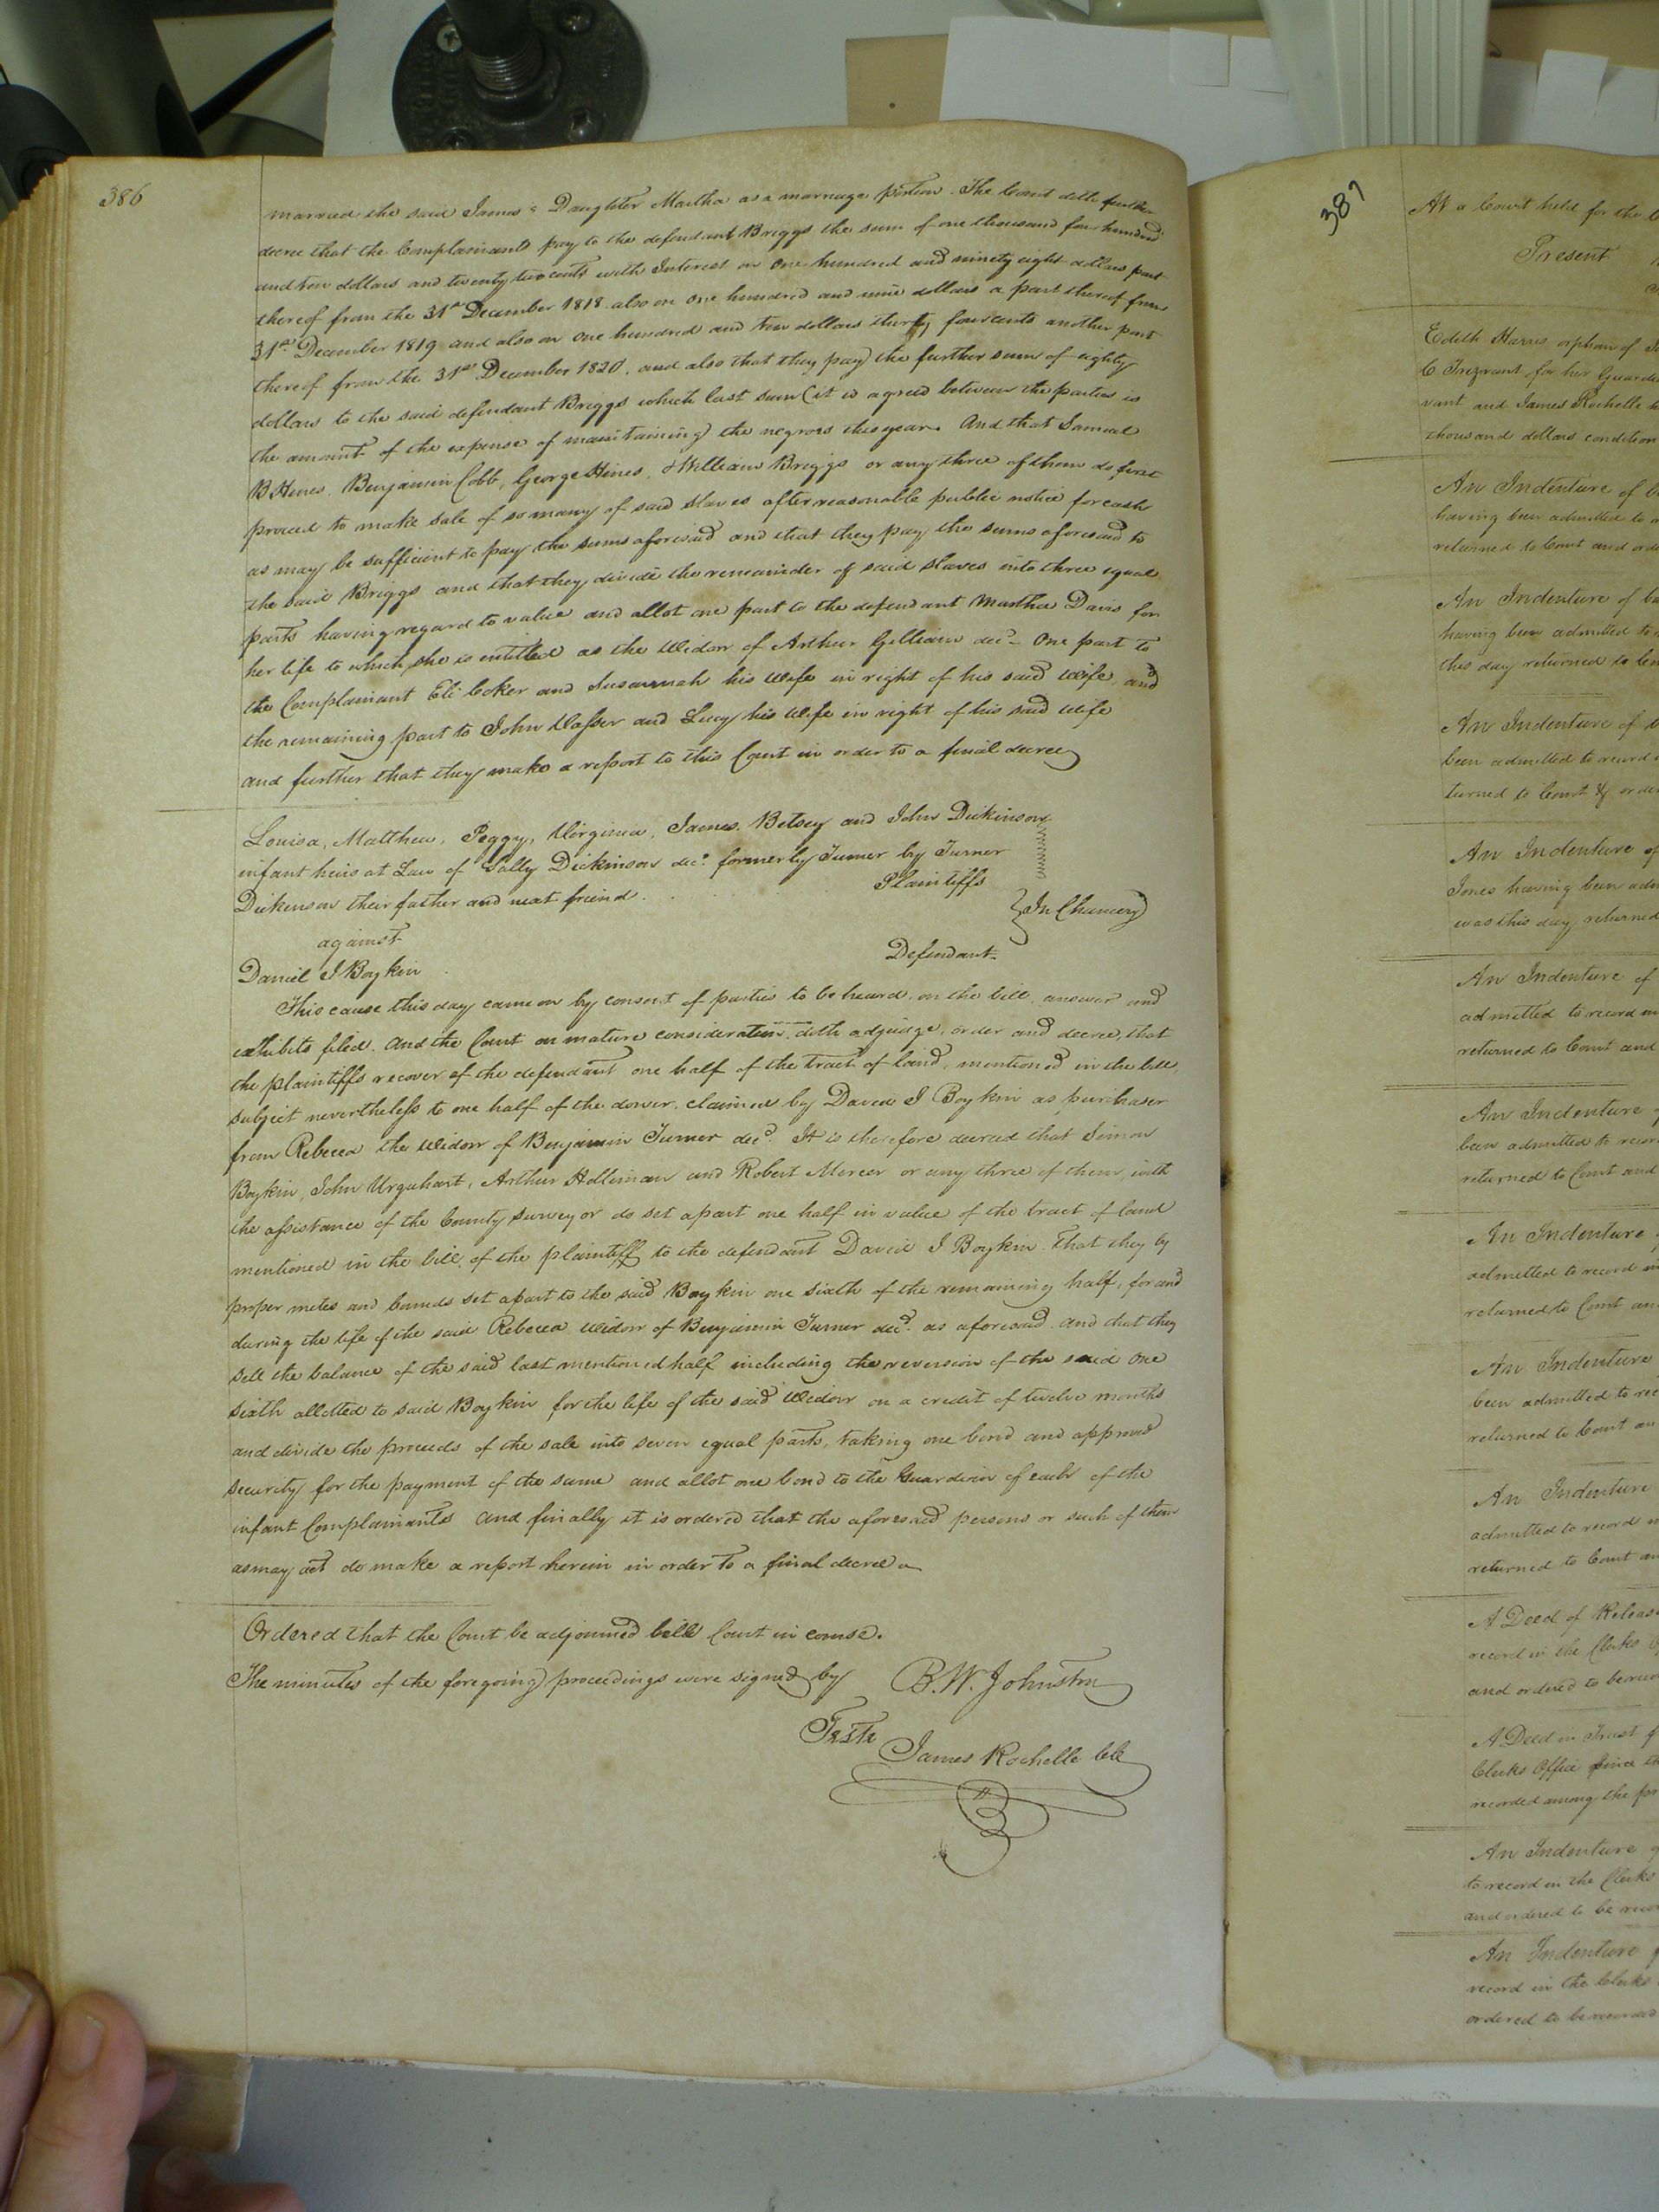 386
married the said James's Daughter Martha as a marriage portion. The Court doth further
decree that the Complainants pay to the defendant Briggs the sum of one thousand four hundred
and ten dollars and twenty two cents with Interest on One hundred and ninety eight dollars part
thereof from the 31st December 1818. also on One hundred and nine dollars a part thereof from
31st December 1819 and also on One hundred and ten dollars thirty four cents another part
thereof from the 31st December 1820. and also that they pay the further sum of eighty
dollars to the said defendant Briggs which last sum (it is agreed between the parties is
the amount of the expense of maintaining) the negroes this year. And that Samuel
B Hines, Benjamin Cobb, George Hines, & William Briggs or any three of them do first
proceed to make sale of so many of said slaves after reasonable public notice for cash
as may be sufficient to pay the sums aforesaid and that they pay the sums aforesaid to
the said Briggs and that they divide the remainder of said slaves into three equal
parts having regard to value and allot one part to the defendant Martha Davis for
her life to which she is entitled as the Widow of Arthur Gilliam decd. One part to
the Complainant Eli Coker and Susannah his Wife in right of his said Wife, and
the remaining part to John Vasser and Lucy his Wife in right of his said Wife
and further that they make a report to this Court in order to a final decree
Louisa, Matthew, Peggy, Virginia, James, Betsey and John Dickinson
infant heirs at Law of Sally Dickinson decd. formerly Turner by Turner
Dickinson their father and next friend. Plaintiffs
against } In Chancery
Daniel J Boykin Defendant.
This cause this day came on by consent of parties to be heard, on the bill, answer and
exhibits filed. And the Court on mature consideration doth adjudge, order and decree, that
the plaintiffs recover of the defendant one half of the tract of land, mentioned in the bill,
subject nevertheless to one half of the dower, claimed by David J Boykin as purchaser
from Rebecca the Widow of Benjamin Turner decd. It is therefore decreed that Simon
Boykin, John Urquhart, Arthur Holleman and Robert Mercer or any three of them, with
the assistance of the County surveyor do set apart one half in value of the tract of land
mentioned in the bill, of the plaintiff to the defendant David J Boykin. That they by
proper metes and bounds set apart to the said Boykin one sixth of the remaining half, for and
during the life of the said Rebecca Widow of Benjamin Turner decd. as aforesaid. and that they
sell the balance of the said last mentioned half including the reversion of the said One
sixth allotted to said Boykin for the life of the said Widow on a credit of twelve months
and divide the proceeds of the sale into seven equal parts, taking one bond and approved
security for the payment of the same and allot one bond to the Guardian of each of the
infant Complainants And finally it is ordered that the aforesaid persons or such of them
as may act do make a report herein in order to a final decree
Ordered that the Court be adjourned till Court in course.
The minutes of the foregoing proceedings were signed by B. W. Johnston
Teste
James Rochelle Clk
387
At a Court held for the
Present
Edith Harris orphan of
C Trezvant for her Guardi
vant and James Rochelle
thousand dollars condition
An Indenture of b
having been admitted to
returned to Court and ord
An Indenture of ba
having been admitted to
this day returned to
An Indenture of
been admitted to record
turned to Court & or
An Indenture of
Jones having been adm
was this day returned
An Indenture of
admitted to record
returned to Court and
An Indenture
been admitted to recor
returned to Court and
An Indenture
admitted to record in
returned to Court an
An Indenture
been admitted to rec
returned to Court an
An Indenture
admitted to record
returned to Court an
A Deed of Release
record in the Clerks
and ordered to be recor
A Deed in Trust
Clerks Office since th
recorded among the pr
An Indenture
to record in the Clerks
and ordered to be recor
An Indenture
record in the Clerks
ordered to be recorded